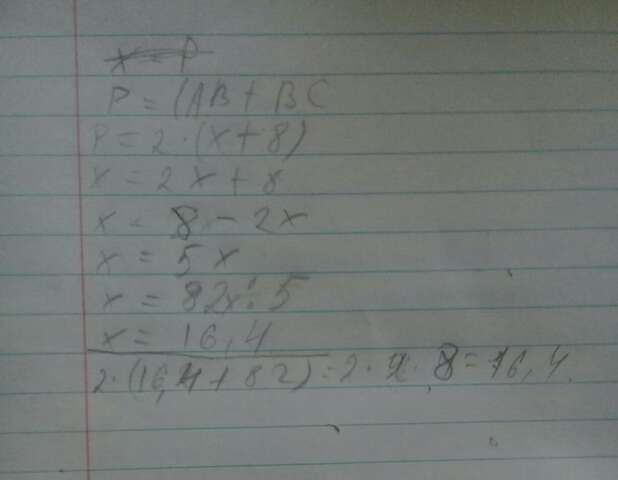 x = P
P = (AB + BC
P = 2 · (x + 8)
x = 2x + 8
x = 8 - 2x
x = 5x
x = 82x : 5
x = 16,4
2 · (16,4 + 82) = 2 · x · 8 = 16,4.